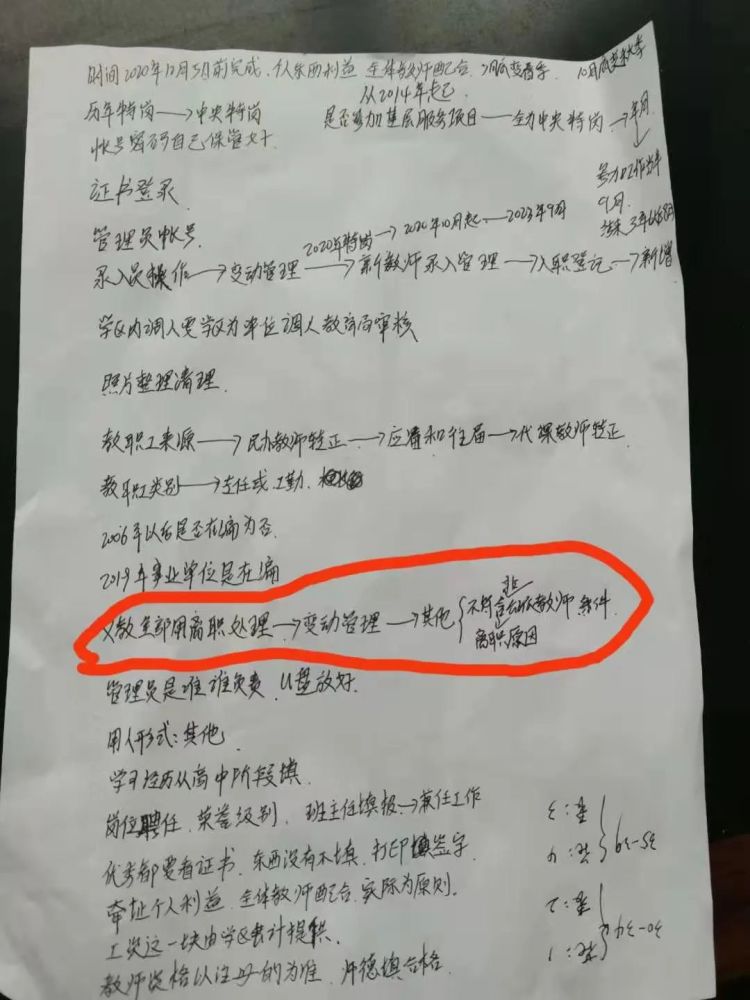 时间2020年12月5日前完成，个人东西利益 全体教师配合
从2014年起
历年特岗→中央特岗 是否参加基层服务项目——全为中央特岗→年月
帐号密码自己保管好
参加工作当年
9月
结束3年以后8月
证书登录
管理员帐号
2020年特岗→2020年10月起—2023年9月
录入员操作→变动管理→新教师录入管理→入职登记→新增
学区内调入要学区为单位调入教育局审核
照片整理清理
教职工来源→民办教师转正→应届和往届→代课教师转正
教职工类别→专任或工勤
2006年以后是否在编为否
2019年事业单位是在编
义教全部用离职处理→变动管理→其他{不符合在岗教师条件
离职原因
管理员是谁谁负责 U盘放好
用人形式：其他
学习经历从高中阶段填
岗位聘任 荣誉级别 班主任填报→兼任工作
优秀都要看证书 东西没有不填 打印签字
牵扯个人利益 全体教师配合 实际为原则
工资这一块由学区会计提供
教师资格以注册的为准 师德填合格
30-34{
1
:2
35-39{
:3